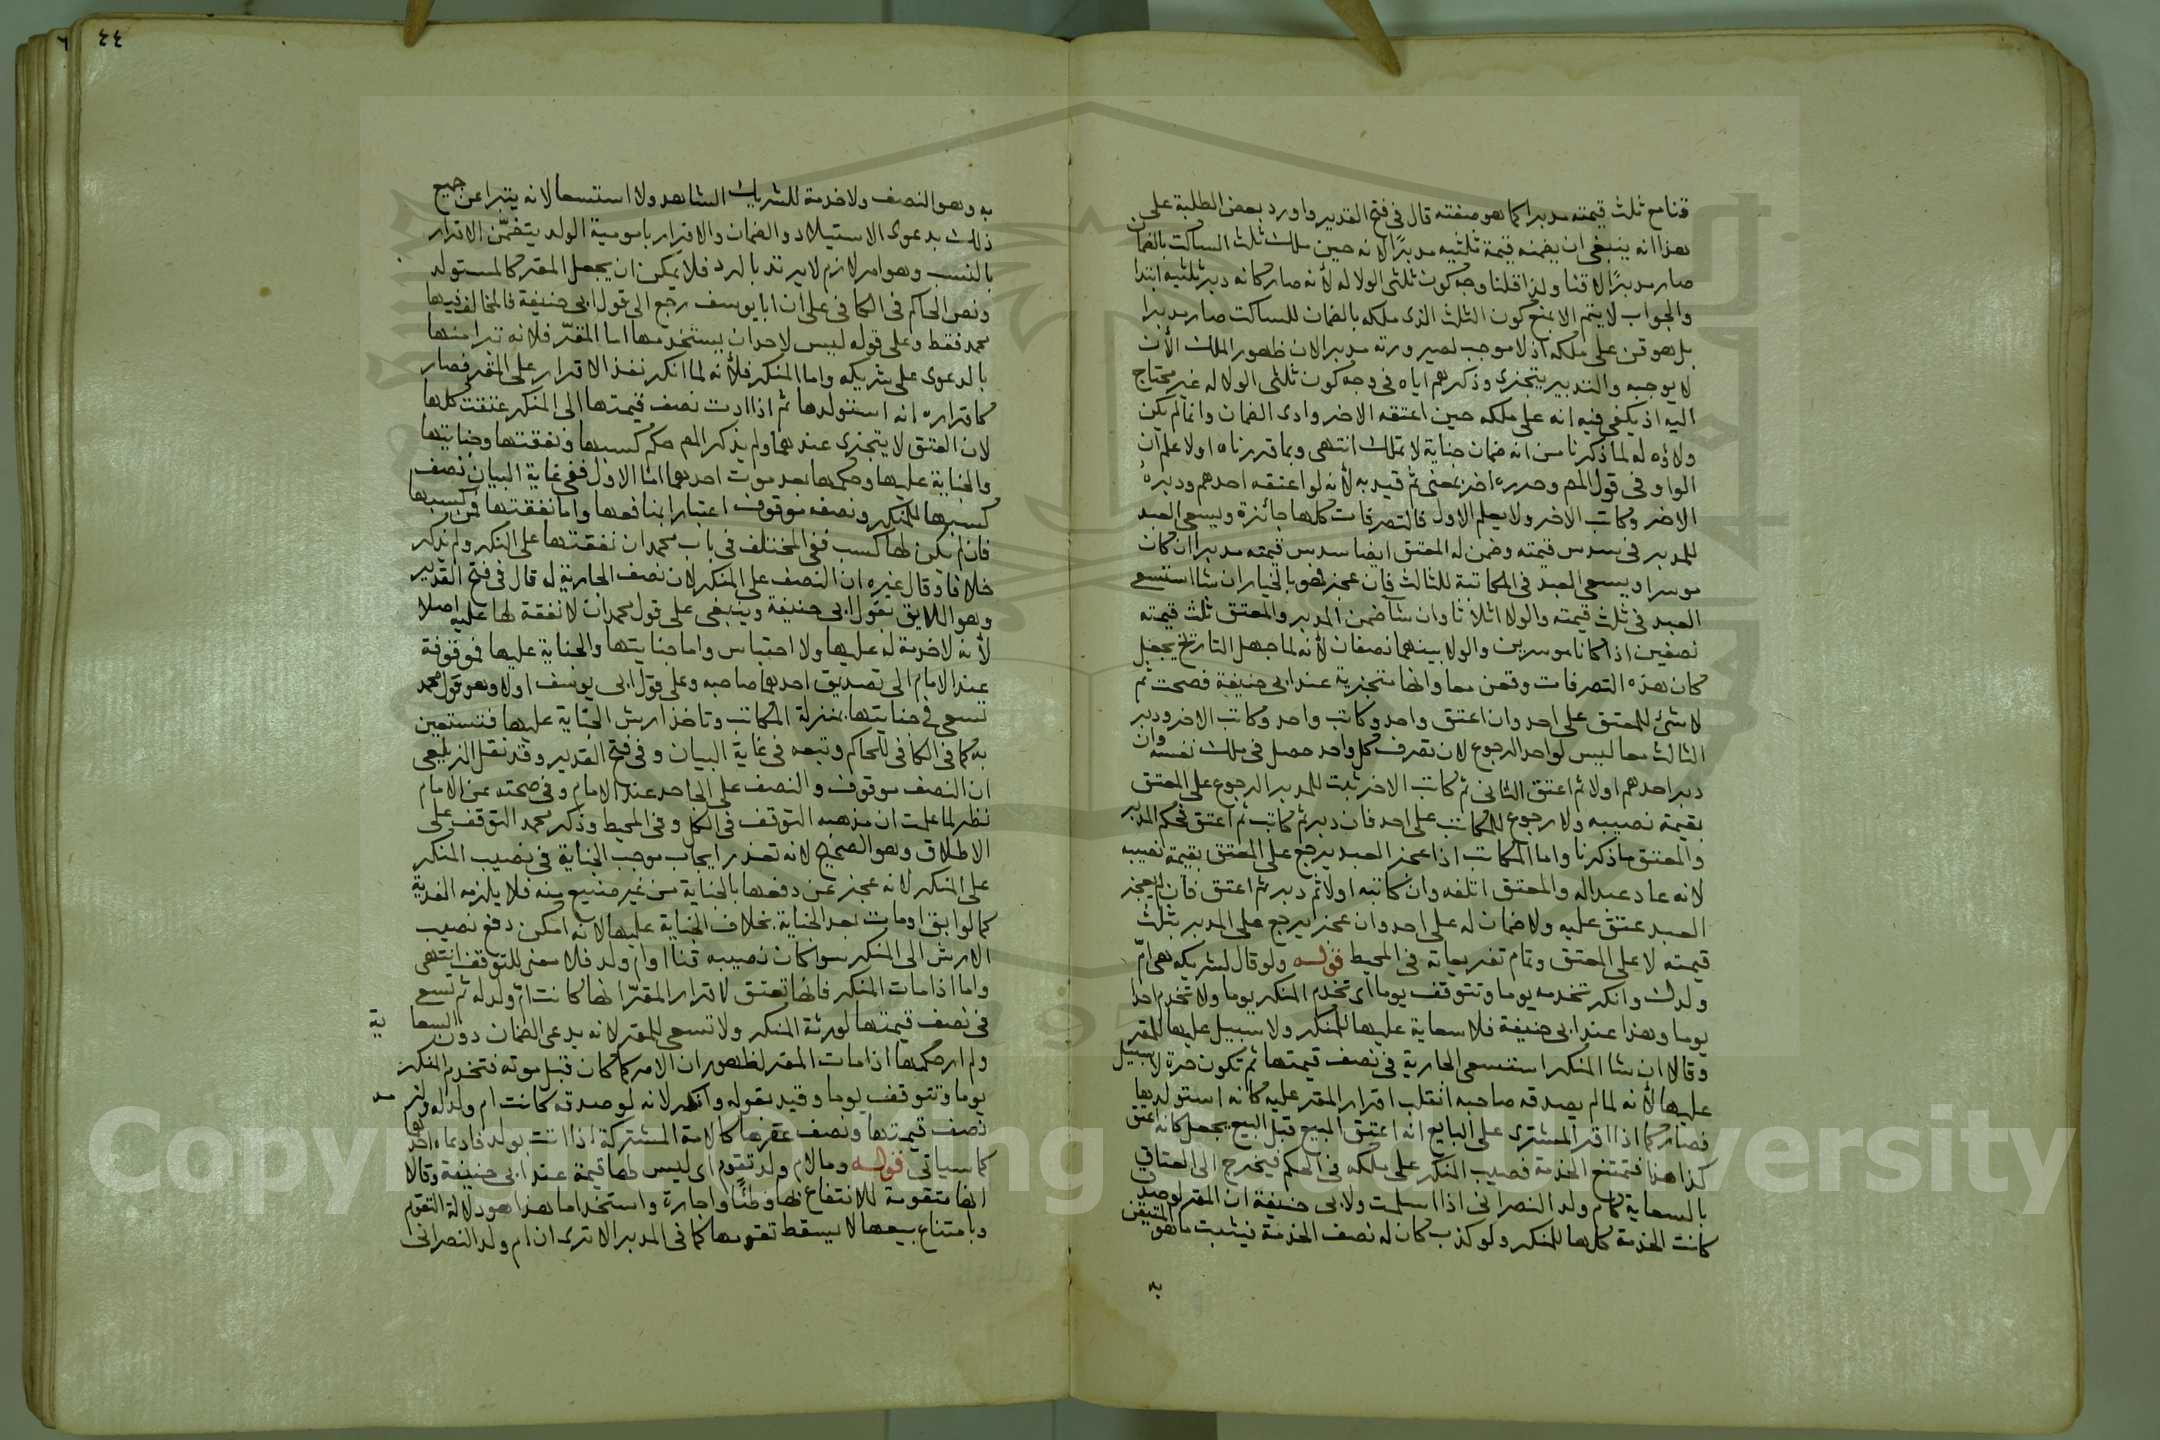 قنا مع ثلث قيمته مدبرا كما هو صفته قال فى فتح القدير واورد بعض الطلبة على
هذا انه ينبغى ان يضمنه قيمة ثلثيه مدبرًا لانه حين ملك ثلث الساكت بالضمان
صار مدبرًا لا قنا ولذا قلنا وجه كون ثلثى الولا له لأنه صار كانه دبر ثلثيه ابتدا
والجواب لا يتم الا بمنع كون الثلث الذى ملكه بالضمان للساكت صار مدبرا
بل هو قن على ملكه اذ لا موجب لصيرورته مدبرا لان ظهور الملك الأن
لا يوجبه والتدبير يتجزى وذكرهم اياه فى وجه كون ثلثى الولا له غير محتاج
اليه اذ يكفى فيه انه على ملكه حين اعتقه الاخر وادى الضمان وانما لم يكن
ولاؤه له لما ذكرنا من انه ضمان جناية لا تملك انتهى وبما قررناه اولا علم ان
الواو فى قول المص وحرره اخر بمعنى ثم قيد به لأنه لو اعتقه احدهم ودبره
الاخر وكاتب الاخر ولا يعلم الاول فالتصرفات كلها جائزة ويسعى العبد
للمدبر فى سدس قيمته وضمن له المعتق ايضا سدس قيمته مدبرا ان كان
موسرا ويسعى العبد فى المكاتبة للثالث فان عجز فهو بالخيار ان شا استسعى
العبد فى ثلث قيمته والولا اثلاثا وان شا ضمن المدبر والمعتق ثلث قيمته
نصفين اذا كانا موسرين والولا بينهما نصفان لأنه لما جهل التاريخ يجعل
كان هذه التصرفات وقعن معا وانها متجزية عند ابى حنيفة فصحت ثم
لا شئ للمعتق على احد وان اعتق واحد وكاتب واحد وكاتب الاخر ودبر
الثالث معا ليس لواحد الرجوع لان تصرف كل واحد حصل فى ملك نفسه وان
دبر احدهم اولا ثم اعتق الثانى ثم كاتب الاخر ثبت للمدبر الرجوع على المعتق
بقيمة نصيبه ولا رجوع للمكاتب على احد فان دبر ثم كاتب ثم اعتق فحكم المدبر
والمعتق ما ذكرنا واما المكاتب اذا عجز العبد يرجع على المعتق بقيمة نصيبه
لانه عاد عبدا له والمعتق اتلفه وان كاتبه اولا ثم دبر ثم اعتق فان لم يعجز
العبد عتق عليه ولا ضمان له على احد وان عجز يرجع على المدبر بثلث
قيمته لا على المعتق وتمام تفريعاته فى المحيط قوله ولو قال لشريكه هى ام
ولدك وانكر تخدمه يوما وتتوقف يوما اى تخدم المنكر يوما ولا تخدم احدا
يوما وهذا عند ابى حنيفة فلا سعاية عليها للمنكر ولا سبيل عليها للمقر
وقالا ان شا المنكر استسعى الجارية فى نصف قيمتها ثم تكون حرة لا سبيل
عليها لأنه لما لم يصدقه صاحبه انقلب اقرار المقر عليه كانه استولدها
فصار كما اذا اقر المشترى على البايع انه اعتق المبيع قبل البيع يجعل كانه اعتق
كذا هنا فتمتنع الخدمة فصيب المنكر على ملكه فى الحكم فيخرج الى العتاق
بالسعاية كام ولد النصرانى اذا اسلمت ولابى حنيفة ان المقر لو صدق
كانت الخدمة كلها للمنكر ولو كذب كان له نصف الخدمة فيثبت ما هو المتيقن
به
٤٤
٦
به وهو النصف ولا خدمة للشريك الشاهد ولا استسعا لانه يتبرا عن جميع
ذلك بدعوى الاستيلاد والضمان والاقرار بامومية الولد يتضمن الاقرار
بالنسب وهو امر لازم لا يرتد بالرد فلا يمكن ان يجعل المقر كالمستولد
ونص الحاكم فى الكافى على ان ابا يوسف رجع الى قول ابى حنيفة فالمخالف فيها
محمد فقط وعلى قوله ليس لاحد ان يستخدمها اما المقر فلانه تبرا منها
بالدعوى على شريكه واما المنكر فلأنه لما انكر نفذ الاقرار على المقر فصار
كاقراره انه استولدها ثم اذا ادت نصف قيمتها الى المنكر عتقت كلها
لان العتق لا يتجزى عندهما ولم يذكر المص حكم كسبها ونفقتها وجنايتها
والجناية عليها وحكمها بعد موت احدهما اما الاول ففى غاية البيان نصف
كسبها للمنكر ونصفه موقوف اعتبارا بمنافعها واما نفقتها فمن كسبها
فان لم يكن لها كسب ففى المختلف فى باب محمد ان نفقتها على المنكر ولم يذكر
خلافا وقال غيره ان النصف على المنكر لان نصف الجارية له قال فى فتح القدير
وهو اللايق بقول ابى حنيفة وينبغى على قول محمد ان لا نفقة لها عليه اصلا
لأنه لا خدمة له عليها ولا احتباس واما جنايتها والجناية عليها فموقوفة
عند الامام الى تصديق احدهما صاحبه وعلى قول ابى يوسف اولا وهو قول محمد
تسعى فى جنايتها بمنزلة المكاتب وتاخذ ارش الجناية عليها فتستعين
به كما فى الكافى للحاكم وتبعه فى غاية البيان وفى فتح القدير وقد نقل الزيلعى
ان النصف موقوف والنصف على الجاحد عند الامام وفى صحته عن الامام
نظر لما علمت ان مذهبه التوقف فى الكل وفى المحيط وذكر محمد التوقف على
الاطلاق وهو الصحيح لانه تعذر ايجاب موجب الجناية فى نصيب المنكر
على المنكر لانه عجز عن دفعها بالجناية من غير صنيع منه فلا يلزمه الفدية
كما لو ابق او مات بعد الجناية بخلاف الجناية عليها لانه امكن دفع نصيب
الارش الى المنكر سوا كان نصيبه قنا او ام ولد فلا معنى للتوقف انتهى
واما اذا مات المنكر فانها تعتق لاقرار المقر انها كانت ام ولد له ثم تسعى
فى نصف قيمتها لورثة المنكر ولا تسعى للمقر لانه يدعى الضمان دون السعاية
ولم ار حكمها اذا مات المقر لظهور ان الامر كما كان قبل موته فتخدم المنكر
يوما وتتوقف يوما وقيد بقوله وانكر لانه لو صدقه كانت ام ولد له ولزمه
نصف قيمتها ونصف عقرها كالامة المشتركة اذا اتت بولد فادعاه احدهما
كما سياتى قوله وما لام ولد تقوم اى ليس لها قيمة عند ابى حنيفة وقالا
انها متقومة للانتفاع بها وطئًا واجارة واستخداما هذا هو دلالة التقوم
وبامتناع بيعها لا يسقط تقومها كما فى المدبر الا ترى ان ام ولد النصرانى